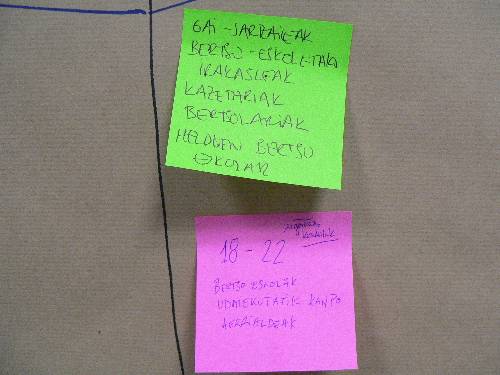 GAI-JARTZAILEAK
BERTSO-ESKOLETAKO
IRAKASLEAK
KAZETARIAK
BERTSOLARIAK
HELDUEN BERTSO
ESKOLAK
18-22
BERTSO ESKOLAK
UDALEKUTATIK KANPO
HERRIALDEAK